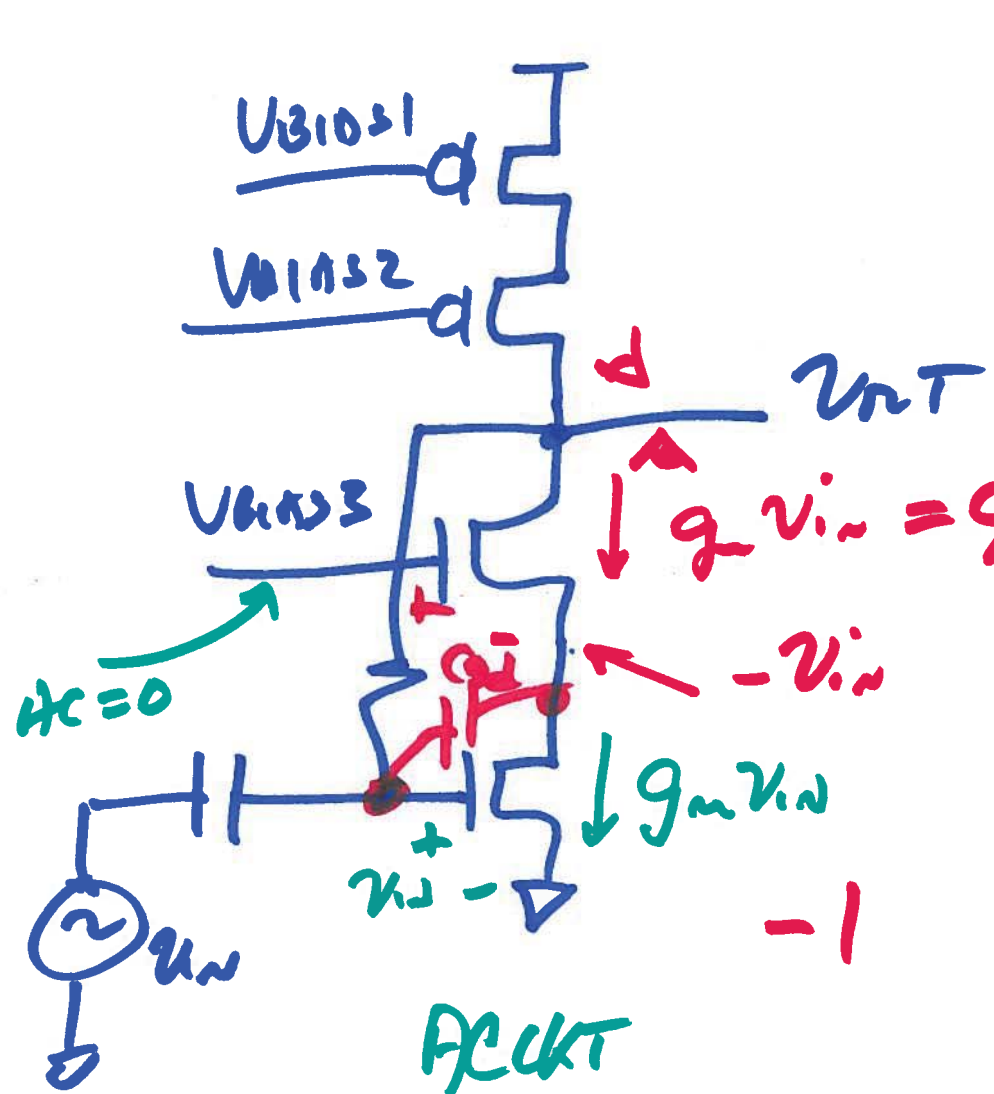 VBIAS1
VBIAS2
VOUT
VBIAS3
gm vin = g
+
-
AC=0
Cgd
-vin
gm vin
+
vin -
vin
-1
AC CKT